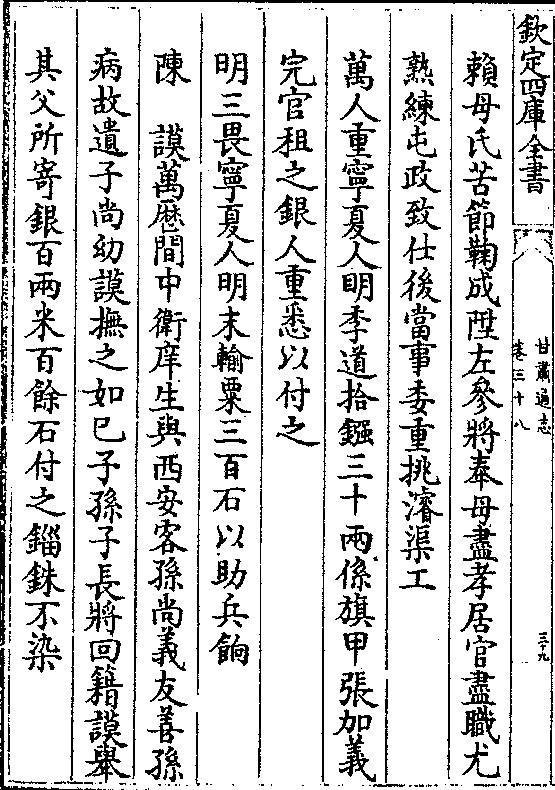 欽定四庫全書
甘肅通志
卷三十八
三十九
賴母氏苦節鞠成陞左參將奉母盡孝居官盡職尤
熟練屯政致仕後當事委重挑濬渠工
萬人重寧夏人明季道拾鏹三十兩係旗甲張加義
完官租之銀人重悉以付之
明三畏寧夏人明末輸粟三百石以助兵餉
陳　謨萬厯間中衛庠生與西安客孫尚義友善孫
病故遺子尚幼謨撫之如己子孫子長將回籍謨舉
其父所寄銀百兩米百餘石付之錙銖不染